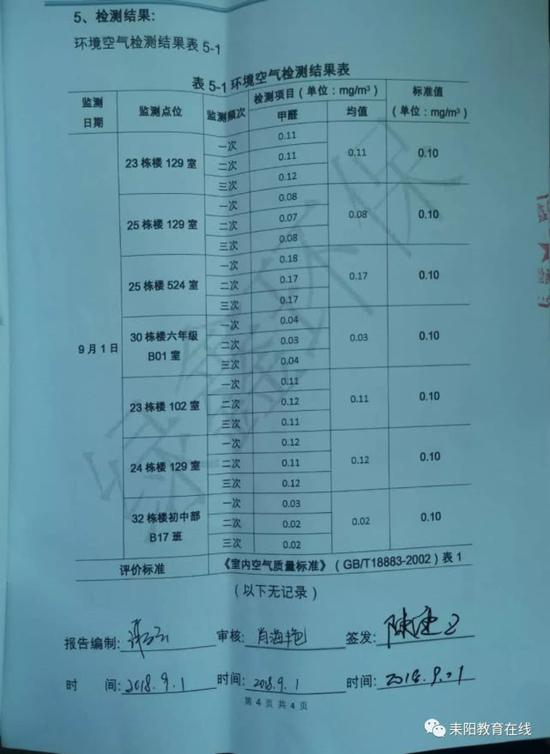 5、检测结果:
环境空气检测结果表 5-1
表 5-1 环境空气检测结果表
监测日期 监测点位 监测频次 检测项目（单位：mg/m³） 标准值（单位：mg/m³）
甲醛 均值
9 月 1 日
23 栋楼 129 室 一次 0.11 0.11 0.10
二次 0.11
三次 0.12
25 栋楼 129 室 一次 0.08 0.08 0.10
二次 0.07
三次 0.08
25 栋楼 524 室 一次 0.18 0.17 0.10
二次 0.17
三次 0.17
30 栋楼六年级 B01 室 一次 0.04 0.03 0.10
二次 0.03
三次 0.04
23 栋楼 102 室 一次 0.11 0.11 0.10
二次 0.12
三次 0.11
24 栋楼 129 室 一次 0.12 0.12 0.10
二次 0.11
三次 0.12
32 栋楼初中部 B17 班 一次 0.03 0.02 0.10
二次 0.02
三次 0.02
评价标准 《室内空气质量标准》（GB/T18883-2002）表 1
（以下无记录）
报告编制: 审核: 肖海艳 签发:
时 间: 2018.9.1 时间: 2018.9.1 时间: 2018.9.1
第 4 页 共 4 页
耒阳教育在线